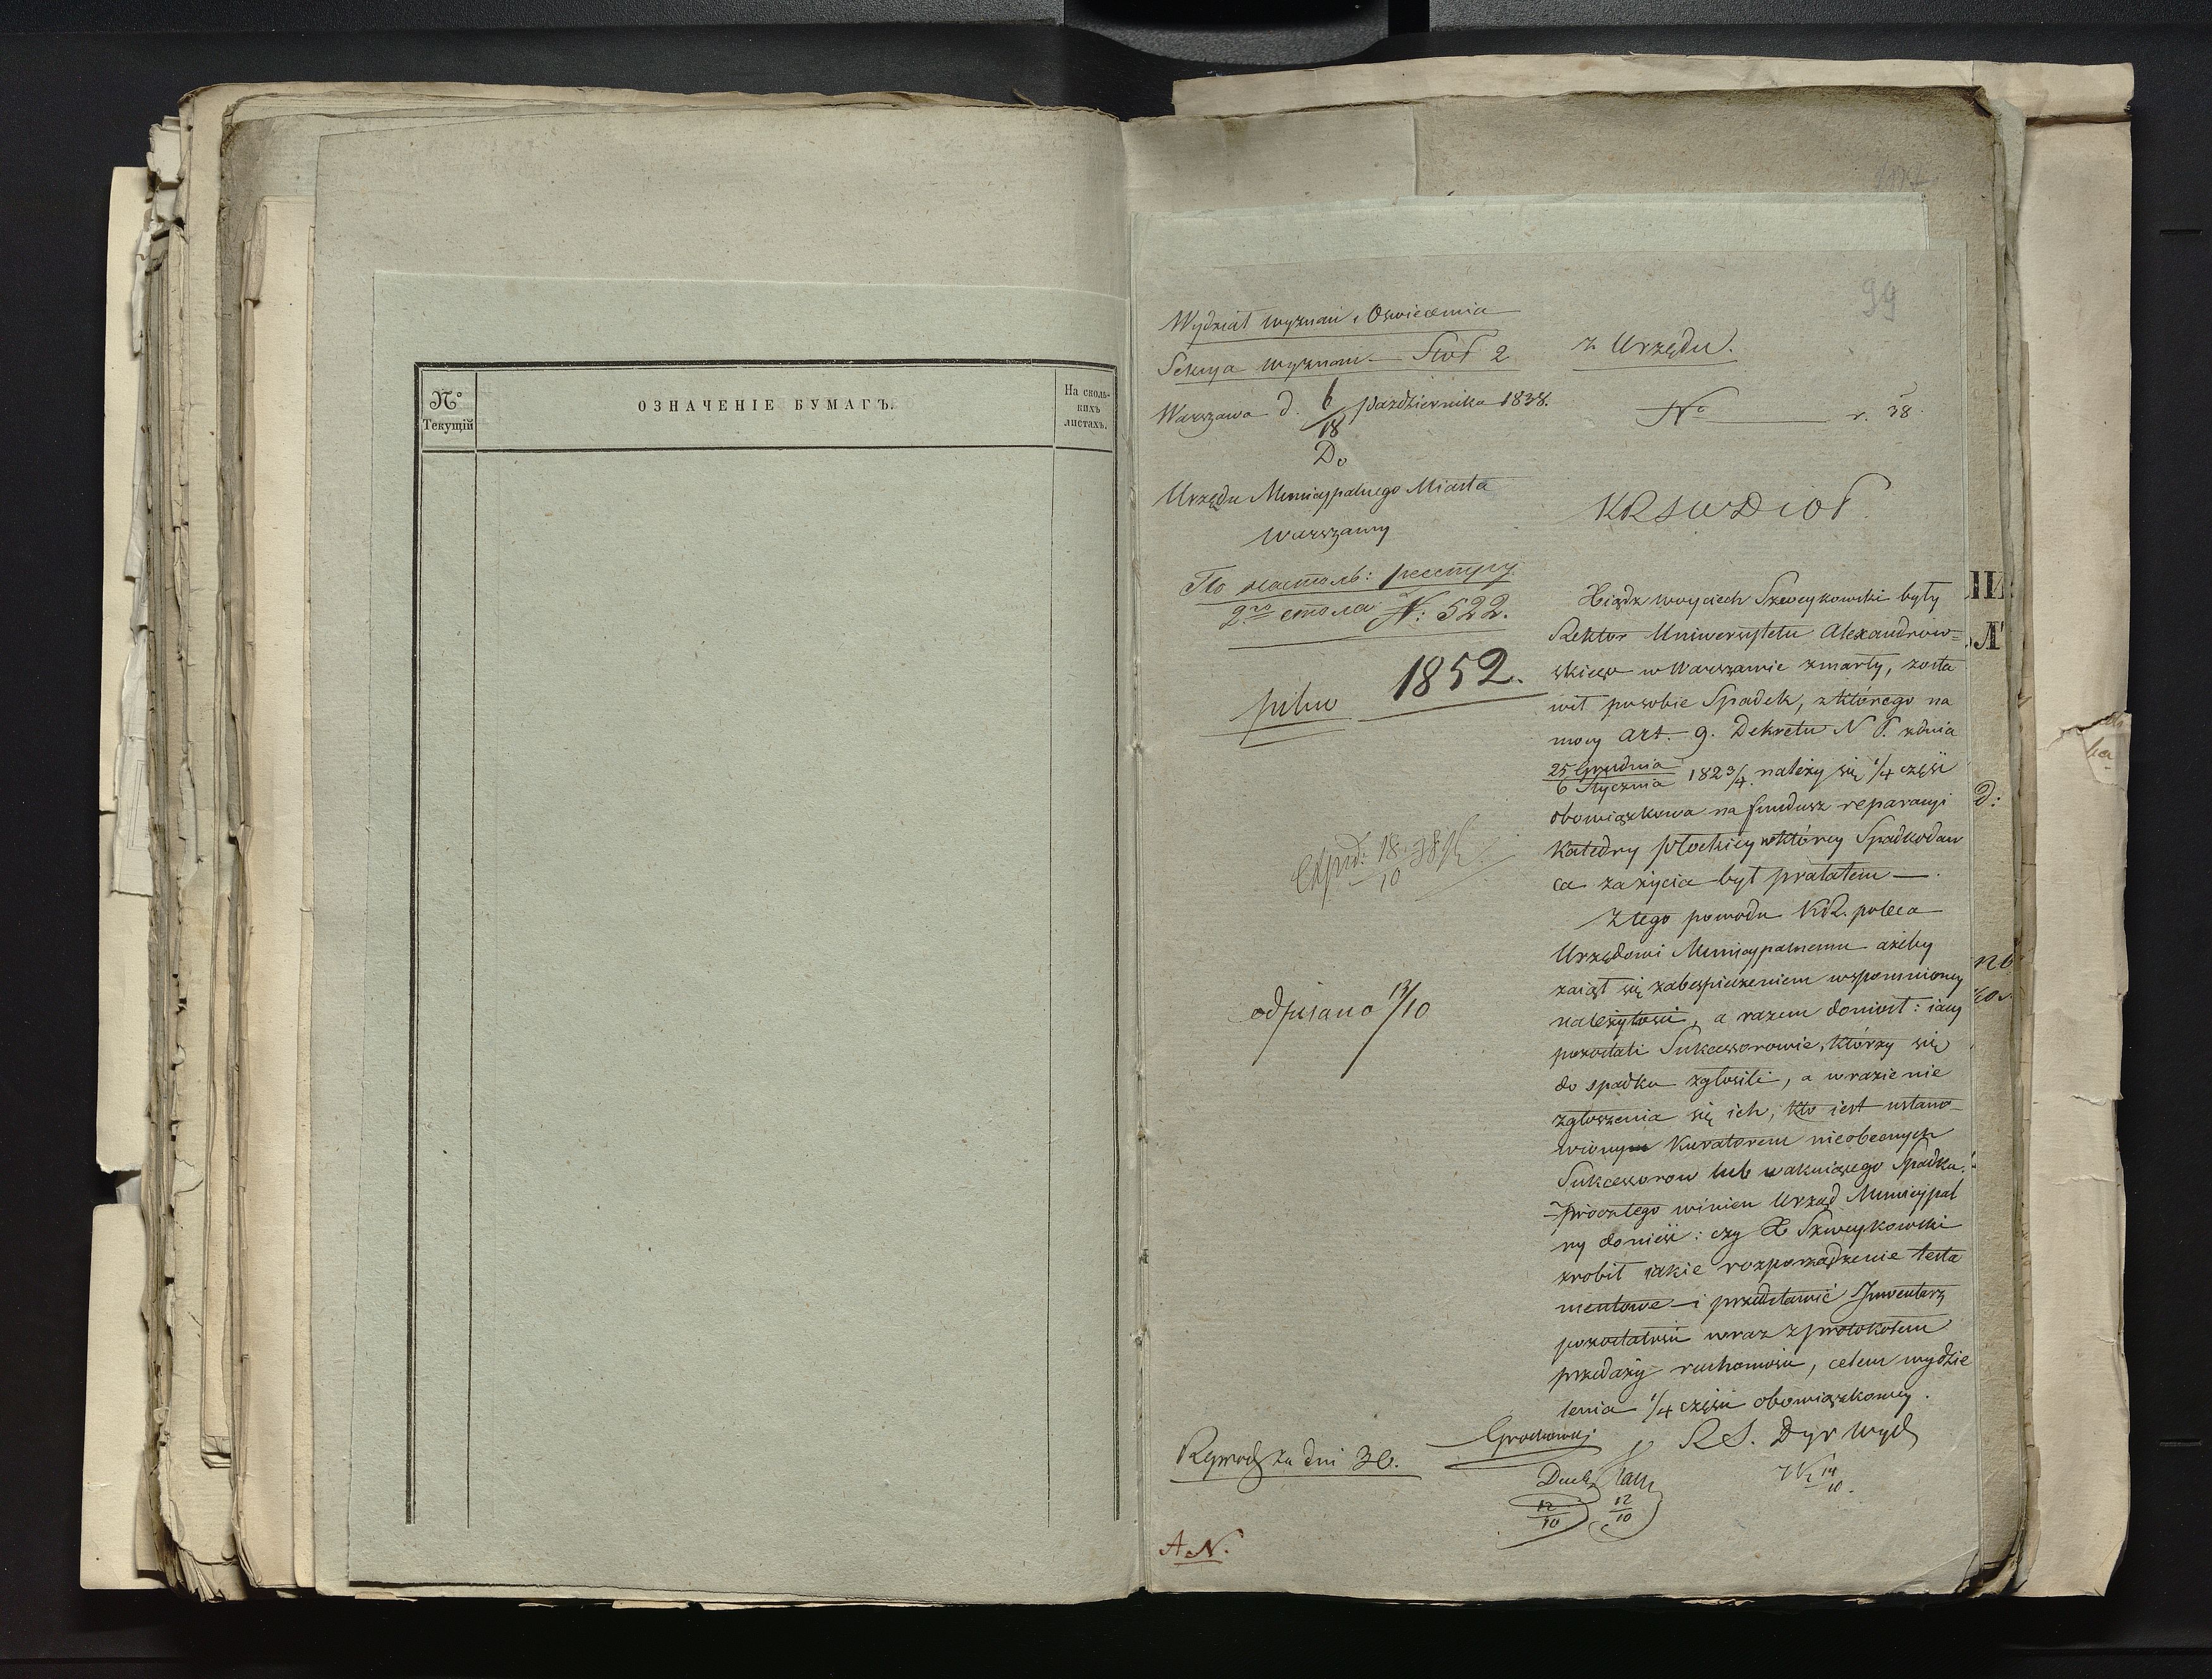 №
Текущій
ОЗНАЧЕНІЕ БУМАГЪ.
На сколь-
кихъ
листахъ.
99
Wydział wyznań i Oswiecenia
Sekcya wyznań — Stoł 2
Warszawa d. 6/18 Października 1838.
Do
Urzędu Municypalnego Miasta
Warszawy
По настоль: реестру
2го стола №: 522.
pilno 1852.
Exped: 18/10 38
odpisano 13/10
Reprod za dni 30.
A N.
z Urzędu.
No r. 38.
KRSWDiOP.
Xiądz Woyciech Szweykowski były
Rektor Uniwersytetu Alexandrow=
skiego w Warszawie zmarły, zosta
wił posobie Spadek, zktórego na
mocy art. 9. Dekretu N P. zdnia
25 Grudnia/6 Stycznia 1823/4. należy się 1/4 część
obowiązkowa na fundusz reparacyi
Katedry płockiey wktórey Spadkodaw
ca zażycia był prałatem — .
Ztego powodu KR. poleca
Urzędowi Municypalnemu ażeby
zaiął się zabespieczeniem wspomnioney
należytości, a razem doniosł: iacy
pozostali Sukcessorowie, którzy się
do spadku zgłosili, a wrazie nie
zgłoszenia się ich, kto iest ustano-
wionym Kuratorem nieobecnych
Sukcessorow lub wakuiącego Spadku.
– prócztego winien Urząd Municypal
ny donieść: czy X Szweykowski
zrobił iakie rozporządzenie testa
mentowe — i przedstawić Inwentarz
pozostałości wraz z protokołem
przedaży ruchomości, celem wydzie
lenia 1/4 części obowiązkowey.
R S. Dyr Wyd
12/10 12/10
14/10.